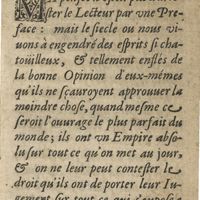 ster le Lecteur par vne Pre-
face: mais le siecle ou nous vi-
uons à engendré des esprits si cha-
toüilleux, & tellement enflés de
la bonne Opinion d'eux-mémes
qu'ils ne sçauroyent approuuer la
moindre chose, quand mesme ce
seroit l'ouurage le plus parfait du
monde; ils ont vn Empire abso-
lu sur tout ce qu'on met au jour,
& on ne leur peut contester le
droit qu'ils ont de porter leur Iu-
gement sur tout ce qui